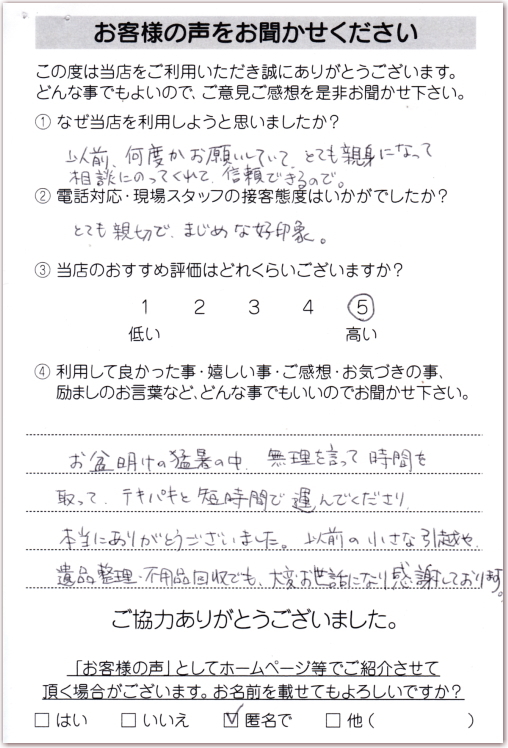 お客様の声をお聞かせください
この度は当店をご利用いただき誠にありがとうございます。
どんな事でもよいので、ご意見ご感想を是非お聞かせ下さい。
① なぜ当店を利用しようと思いましたか？
以前、何度かお願いしていて、とても親身になって
相談にのってくれて、信頼できるので。
② 電話対応・現場スタッフの接客態度はいかがでしたか？
とても親切で、まじめな好印象。
③ 当店のおすすめ評価はどれくらいございますか？
1 2 3 4 ⑤
低い 高い
④ 利用して良かった事・嬉しい事・ご感想・お気づきの事、
励ましのお言葉など、どんな事でもいいのでお聞かせ下さい。
お盆明けの猛暑の中、無理を言って時間を
取って、テキパキと短時間で運んでくださり、
本当にありがとうございました。以前の小さな引越や、
遺品整理・不用品回収でも、大変お世話になり感謝しております。
ご協力ありがとうございました。
「お客様の声」としてホームページ等でご紹介させて
頂く場合がございます。お名前を載せてもよろしいですか？
□ はい □ いいえ ☑ 匿名で □ 他（ ）